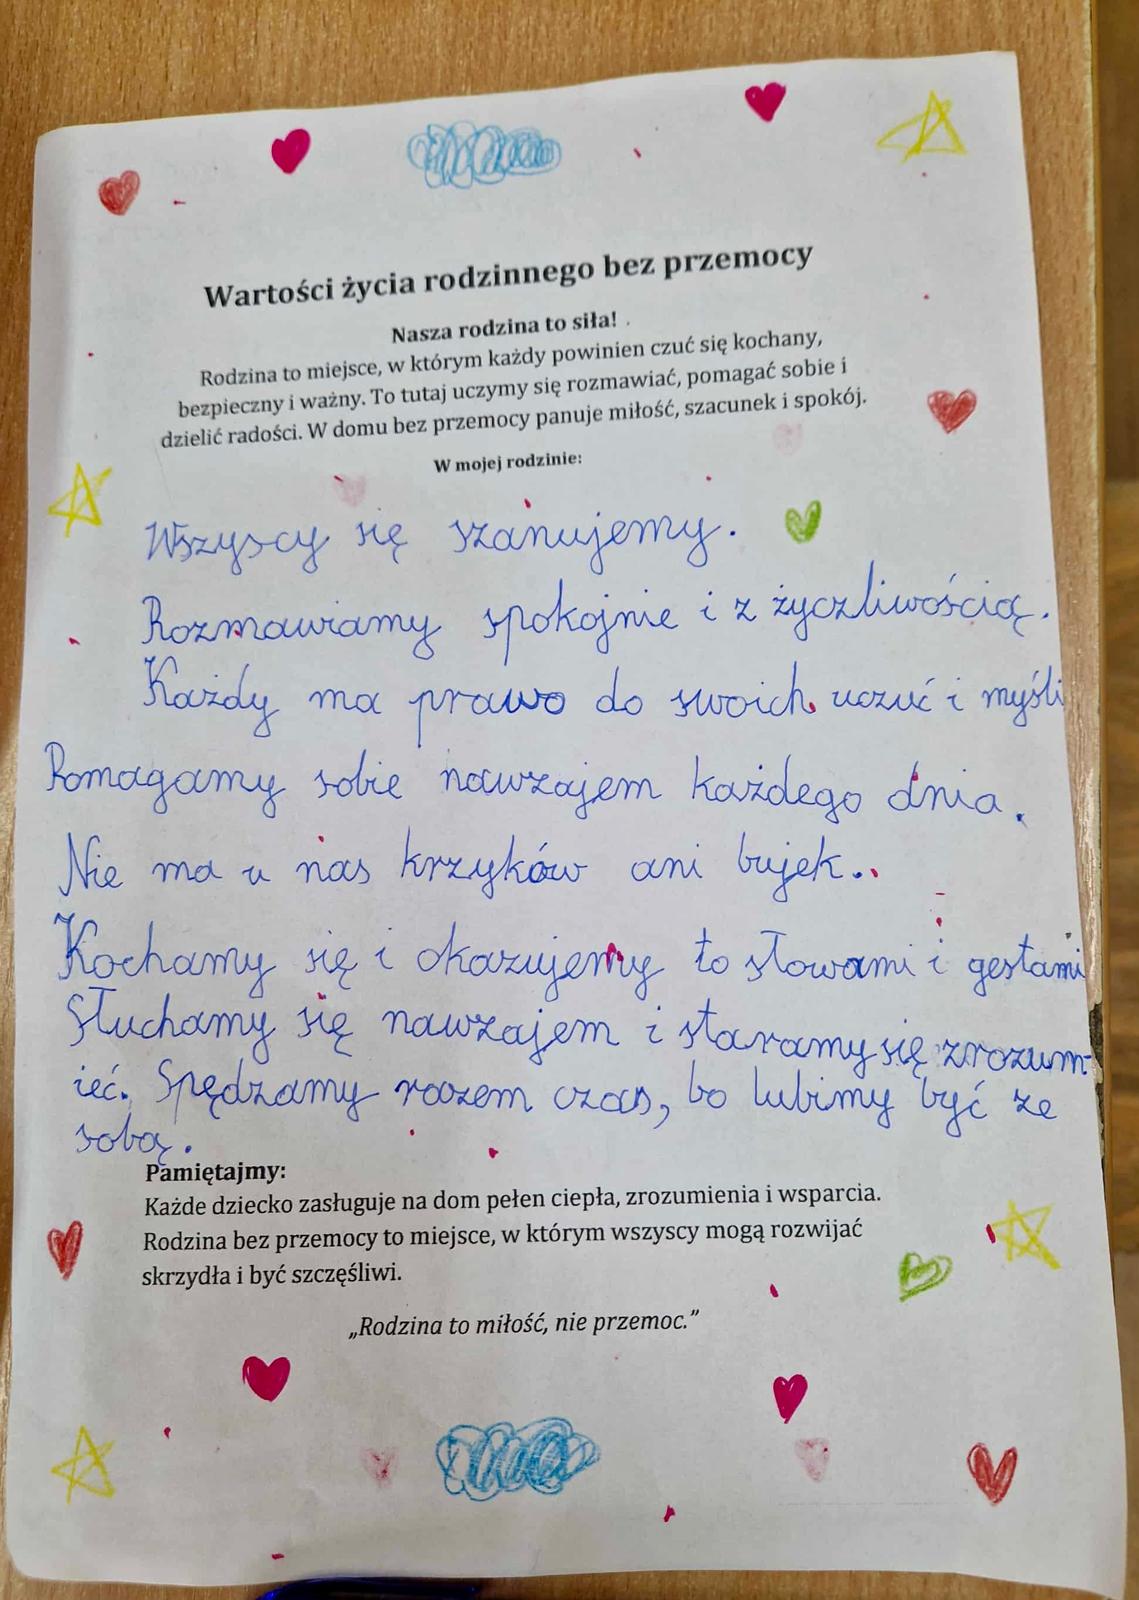 Wartości życia rodzinnego bez przemocy
Nasza rodzina to siła!
Rodzina to miejsce, w którym każdy powinien czuć się kochany,
bezpieczny i ważny. To tutaj uczymy się rozmawiać, pomagać sobie i
dzielić radości. W domu bez przemocy panuje miłość, szacunek i spokój.
W mojej rodzinie:
Wszyscy się szanujemy.
Rozmawiamy spokojnie i z życzliwością.
Każdy ma prawo do swoich uczuć i myśli
Pomagamy sobie nawzajem każdego dnia.
Nie ma u nas krzyków ani bujek..
Kochamy się i okazujemy to słowami i gestami
Słuchamy się nawzajem i staramy się zrozum-
ieć. Spędzamy razem czas, bo lubimy być ze
sobą.
Pamiętajmy:
Każde dziecko zasługuje na dom pełen ciepła, zrozumienia i wsparcia.
Rodzina bez przemocy to miejsce, w którym wszyscy mogą rozwijać
skrzydła i być szczęśliwi.
„Rodzina to miłość, nie przemoc.”